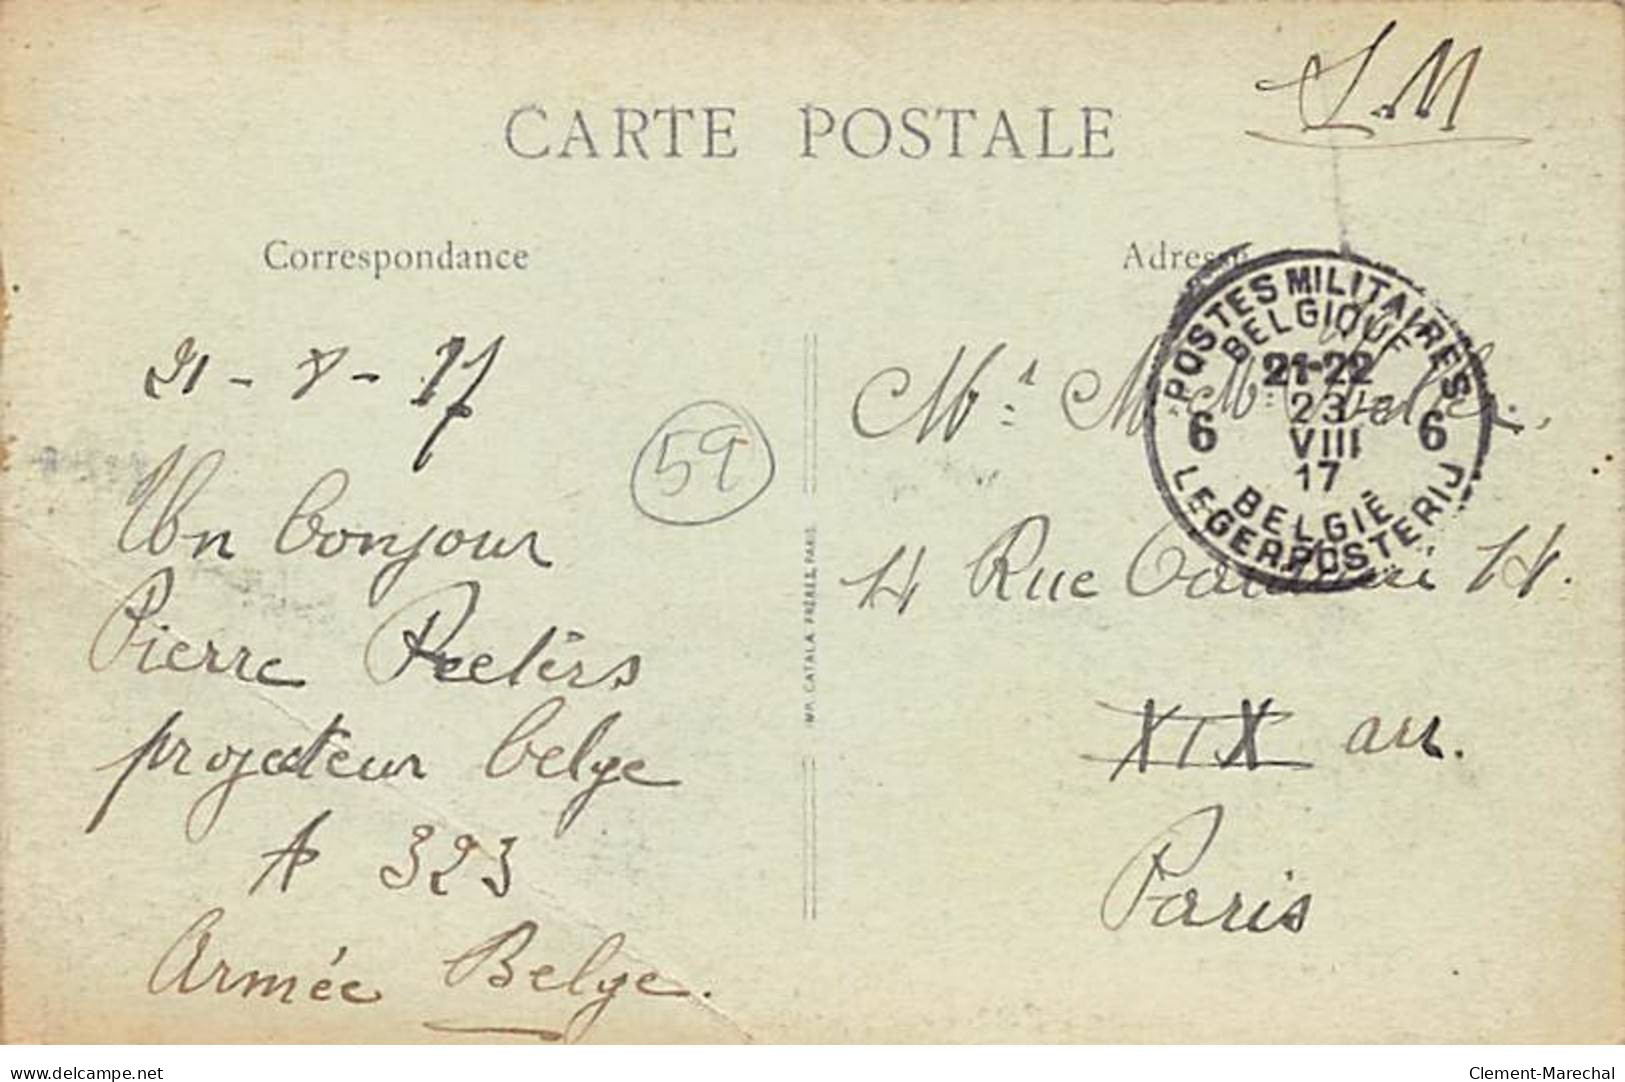 S.M
CARTE POSTALE
Correspondance
Adresse
21-8-17
Un bonjour
Pierre Peeters
projecteur belge
A 323
Armée Belge.
59
IMP. CATALA FRÈRES, PARIS
POSTES MILITAIRES
BELGIQUE
21-22
23
VIII
17
6 6
BELGIË
LEGERPOSTERIJ
Mr M
14 Rue 14.
XIX arr.
Paris
delcampe.net
Clement-Marechal